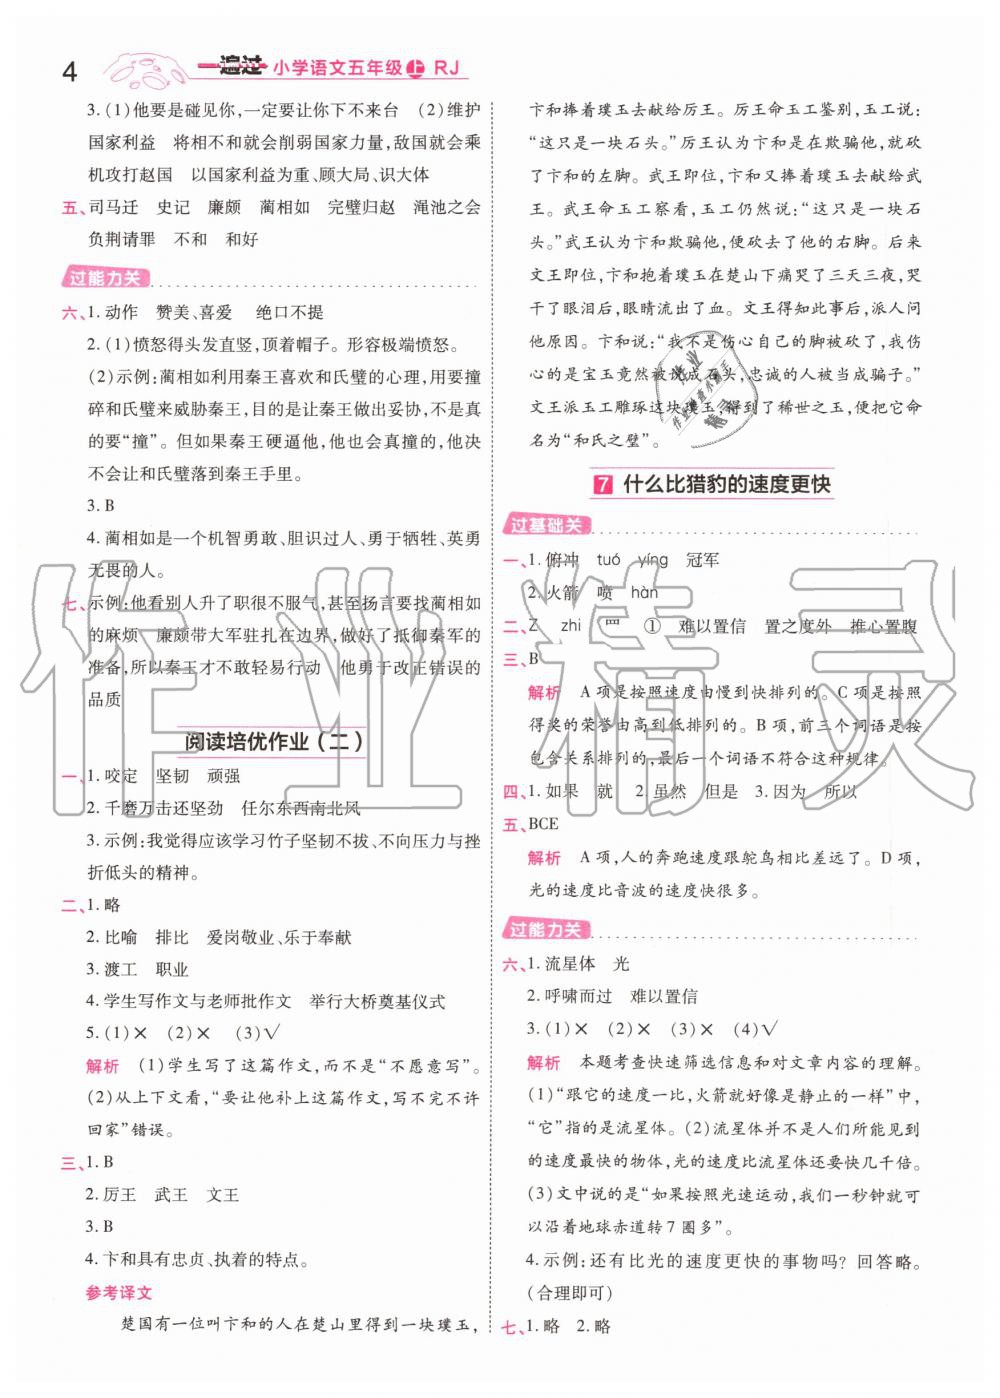 4
一遍过 小学语文五年级 上 RJ
3.(1)他要是碰见你,一定要让你下不来台 (2)维护
国家利益 将相不和就会削弱国家力量,敌国就会乘
机攻打赵国 以国家利益为重、顾大局、识大体
五、司马迁 史记 廉颇 蔺相如 完璧归赵 渑池之会
负荆请罪 不和 和好
过能力关
六、1.动作 赞美、喜爱 绝口不提
2.(1)愤怒得头发直竖,顶着帽子。形容极端愤怒。
(2)示例:蔺相如利用秦王喜欢和氏璧的心理,用要撞
碎和氏璧来威胁秦王,目的是让秦王做出妥协,不是真
的要“撞”。但如果秦王硬逼他,他也会真撞的,他决
不会让和氏璧落到秦王手里。
3.B
4.蔺相如是一个机智勇敢、胆识过人、勇于牺牲、英勇
无畏的人。
七、示例:他看别人升了职很不服气,甚至扬言要找蔺相如
的麻烦 廉颇带大军驻扎在边界,做好了抵御秦军的
准备,所以秦王才不敢轻易行动 他勇于改正错误的
品质
阅读培优作业(二)
一、1.咬定 坚韧 顽强
2.千磨万击还坚劲 任尔东西南北风
3.示例:我觉得应该学习竹子坚韧不拔、不向压力与挫
折低头的精神。
二、1.略
2.比喻 排比 爱岗敬业、乐于奉献
3.渡工 职业
4.学生写作文与老师批作文 举行大桥奠基仪式
5.(1)× (2)× (3)√
解析 (1)学生写了这篇作文,而不是“不愿意写”。
(2)从上下文看,“要让他补上这篇作文,写不完不许
回家”错误。
三、1.B
2.厉王 武王 文王
3.B
4.卞和具有忠贞、执着的特点。
参考译文
楚国有一位叫卞和的人在楚山里得到一块璞玉,
卞和捧着璞玉去献给厉王。厉王命玉工鉴别,玉工说:
“这只是一块石头。”厉王认为卞和是在欺骗他,就砍
了卞和的左脚。武王即位,卞和又捧着璞玉去献给武
王。武王命玉工察看,玉工仍然说:“这只是一块石
头。”武王认为卞和欺骗他,便砍去了他的右脚。后来
文王即位,卞和抱着璞玉在楚山下痛哭了三天三夜,哭
干了眼泪后,眼睛流出了血。文王得知此事后,派人问
他原因。卞和说:“我不是伤心自己的脚被砍了,我伤
心的是宝玉竟然被说成石头,忠诚的人被当成骗子。”
文王派玉工雕琢这块璞玉,得到了稀世之玉,便把它命
名为“和氏之璧”。
7 什么比猎豹的速度更快
过基础关
一、1.俯冲 tuó yíng 冠军
2.火箭 喷 hàn
二、Z zhi 罒 ① 难以置信 置之度外 推心置腹
三、B
解析 A项是按照速度由慢到快排列的。C项是按照
得奖的荣誉由高到低排列的。B项,前三个词语是按
包含关系排列的,最后一个词语不符合这种规律。
四、1.如果 就 2.虽然 但是 3.因为 所以
五、BCE
解析 A项,人的奔跑速度跟鸵鸟相比差远了。D项,
光的速度比音波的速度快很多。
过能力关
六、1.流星体 光
2.呼啸而过 难以置信
3.(1)× (2)× (3)× (4)√
解析 本题考查快速筛选信息和对文章内容的理解。
(1)“跟它的速度一比,火箭就好像是静止的一样”中,
“它”指的是流星体。(2)流星体并不是人们所能见到
的速度最快的物体,光的速度比流星体还要快几千倍。
(3)文中说的是“如果按照光速运动,我们一秒钟就可
以沿着地球赤道转7圈多”。
4.示例:还有比光的速度更快的事物吗? 回答略。
(合理即可)
七、1.略 2.略
作业精灵